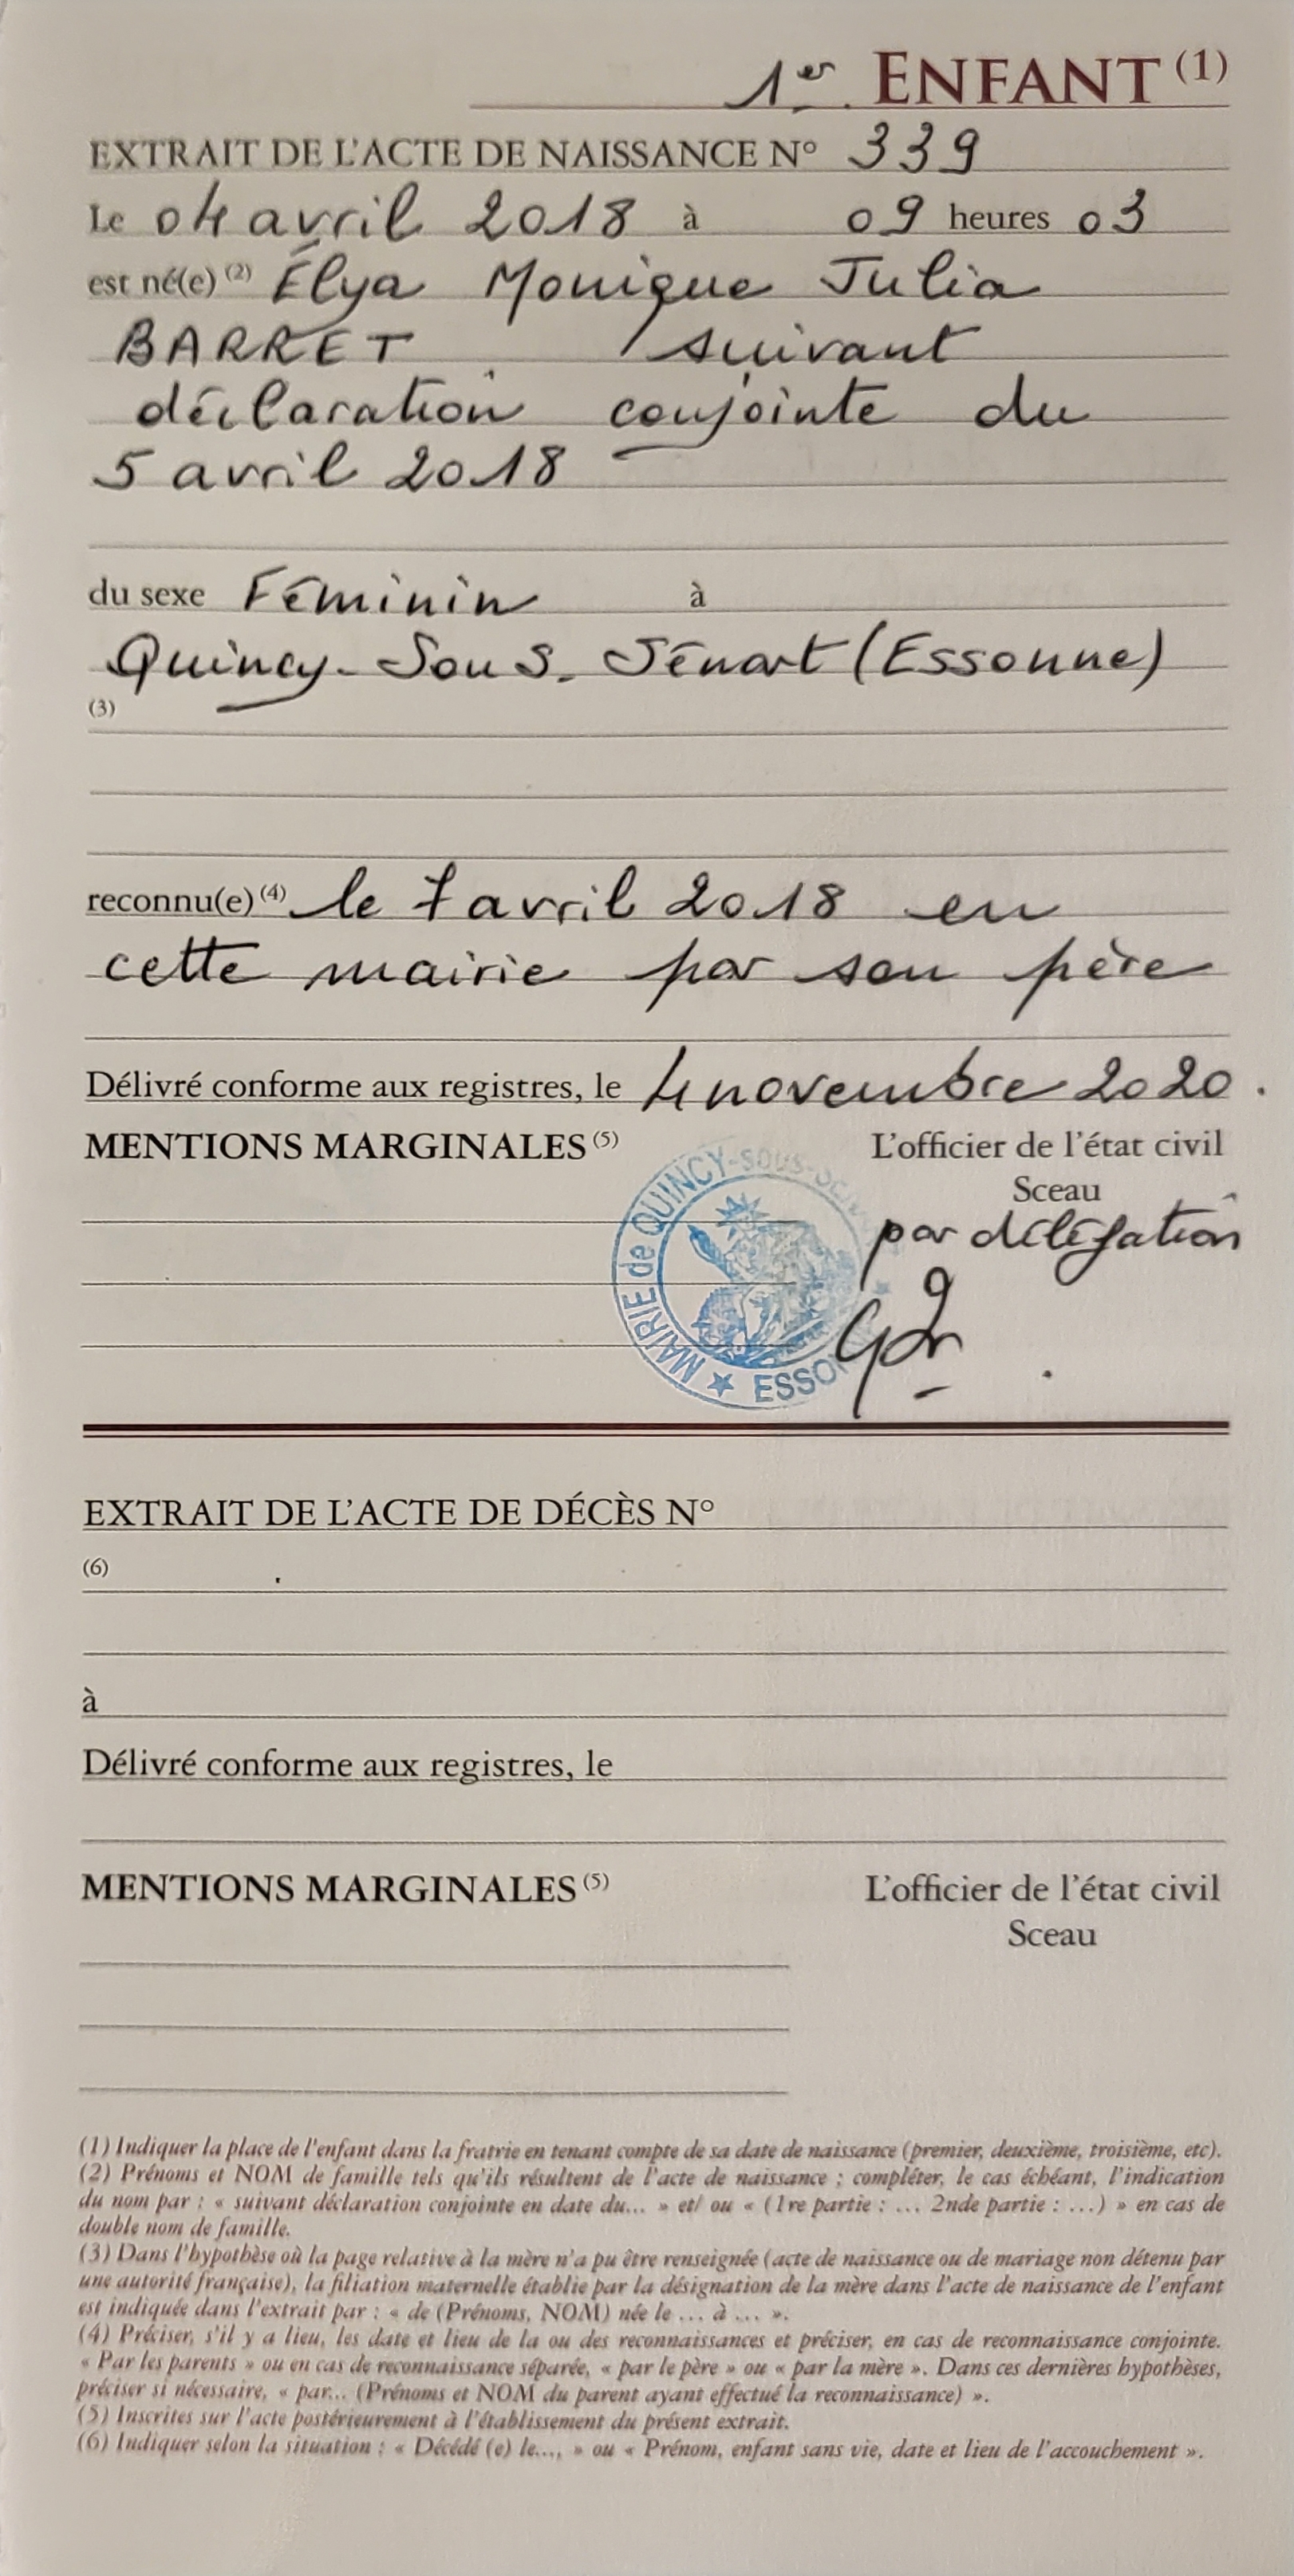 1er ENFANT (1)
EXTRAIT DE L'ACTE DE NAISSANCE N° 339
Le 04 avril 2018 à 09 heures 03
est né(e) (2) Élya Monique Julia
BARRET suivant
déclaration conjointe du
5 avril 2018
du sexe Féminin à
Quincy-Sous-Sénart (Essonne)
(3)
reconnu(e) (4) le 7 avril 2018 en
cette mairie par son père
Délivré conforme aux registres, le 4 novembre 2020.
MENTIONS MARGINALES (5) L'officier de l'état civil
Sceau
par délégation
MAIRIE de QUINCY-SOUS-
ESSO
EXTRAIT DE L'ACTE DE DÉCÈS N°
(6)
à
Délivré conforme aux registres, le
MENTIONS MARGINALES (5) L'officier de l'état civil
Sceau
(1) Indiquer la place de l'enfant dans la fratrie en tenant compte de sa date de naissance (premier, deuxième, troisième, etc).
(2) Prénoms et NOM de famille tels qu'ils résultent de l'acte de naissance ; compléter, le cas échéant, l'indication
du nom par : « suivant déclaration conjointe en date du... » et/ ou « (1re partie : ... 2nde partie : ...) » en cas de
double nom de famille.
(3) Dans l'hypothèse où la page relative à la mère n'a pu être renseignée (acte de naissance ou de mariage non détenu par
une autorité française), la filiation maternelle établie par la désignation de la mère dans l'acte de naissance de l'enfant
est indiquée dans l'extrait par : « de (Prénoms, NOM) née le ... à ... ».
(4) Préciser, s'il y a lieu, les date et lieu de la ou des reconnaissances et préciser, en cas de reconnaissance conjointe.
« Par les parents » ou en cas de reconnaissance séparée, « par le père » ou « par la mère ». Dans ces dernières hypothèses,
préciser si nécessaire, « par... (Prénoms et NOM du parent ayant effectué la reconnaissance) ».
(5) Inscrites sur l'acte postérieurement à l'établissement du présent extrait.
(6) Indiquer selon la situation : « Décédé (e) le..., » ou « Prénom, enfant sans vie, date et lieu de l'accouchement ».